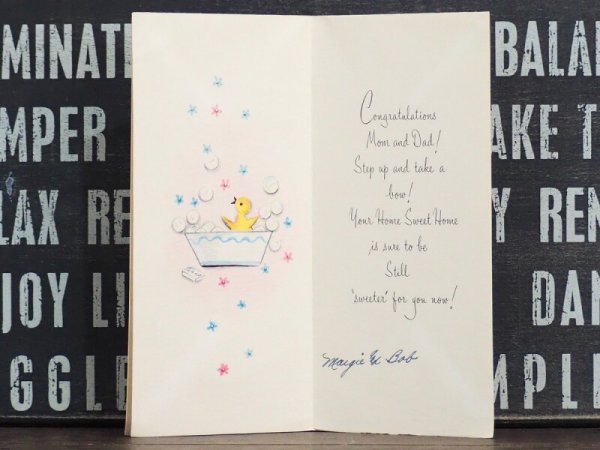 MINATE
MPER
LAX RE
JOY LI
GGLE
Congratulations
Mom and Dad!
Step up and take a
bow!
Your Home Sweet Home
is sure to be
Still
"sweeter" for you now!
Margie & Bob
BALA
AKE T
Y REN
DAN
MPLI